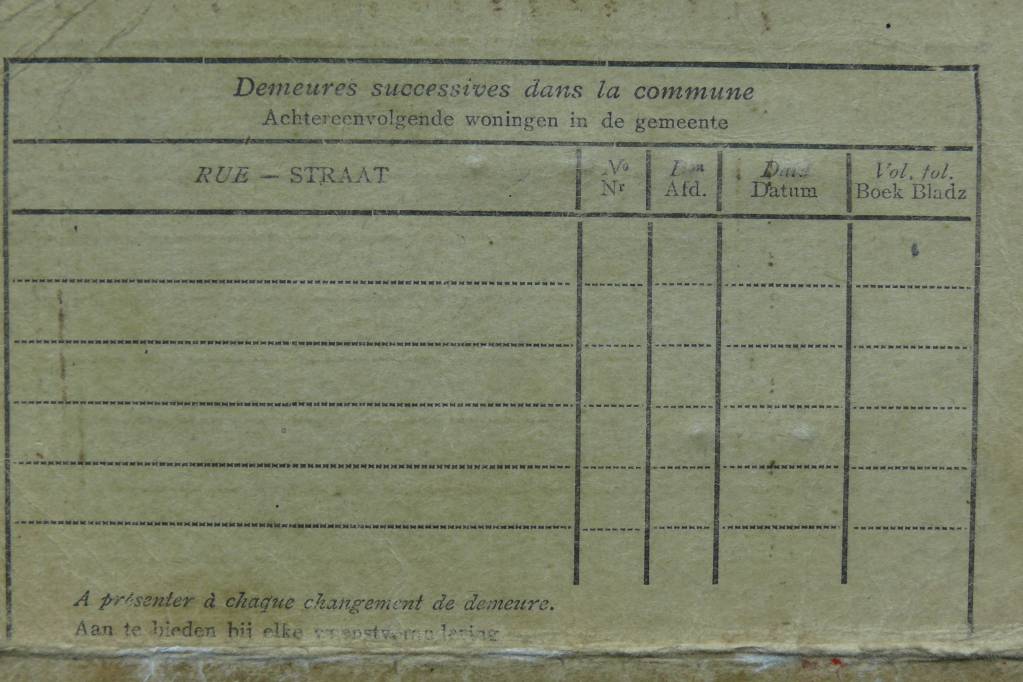 Demeures successives dans la commune
Achtereenvolgende woningen in de gemeente
RUE — STRAAT
Nº
Nr
Afd.
Date
Datum
Vol. fol.
Boek Bladz
A présenter à chaque changement de demeure.
Aan te bieden bij elke